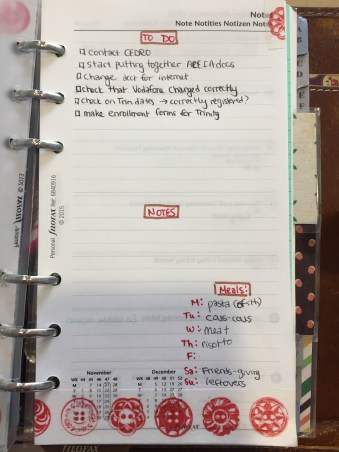 Note Notities Notizen
TO DO
□ contact CEDRO
□ start putting together docs
□ change acct for internet
□ check that Vodafone charged correctly
□ check on Trin dates → correctly registered?
□ make enrollment forms for Trinity
NOTES
Meals:
M: pasta
Tu: cous-cous
W: meat
Th: risotto
F:
Sa: Friends-giving
Su: leftovers
November
December
Personal filofax Ref: 6840916
© 2015
FILOFAX